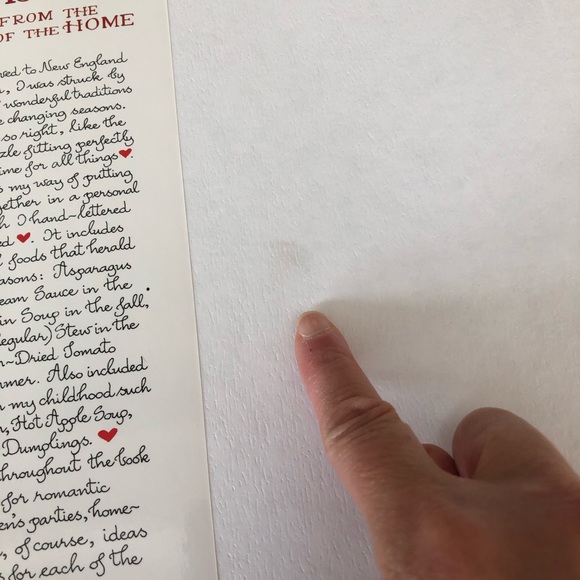 FROM THE
OF THE HOME
to New England
, I was struck by
wonderful traditions
changing seasons.
so right, like the
fitting perfectly
for all things♥.
my way of putting
in a personal
I hand-lettered
♥. It includes
foods that herald
: Asparagus
Sauce in the
in Soup in the fall,
Stew in the
-Dried Tomato
. Also included
my childhood such
, Hot Apple Soup,
Dumplings. ♥
throughout the book
for romantic
parties, home-
, of course, ideas
for each of the